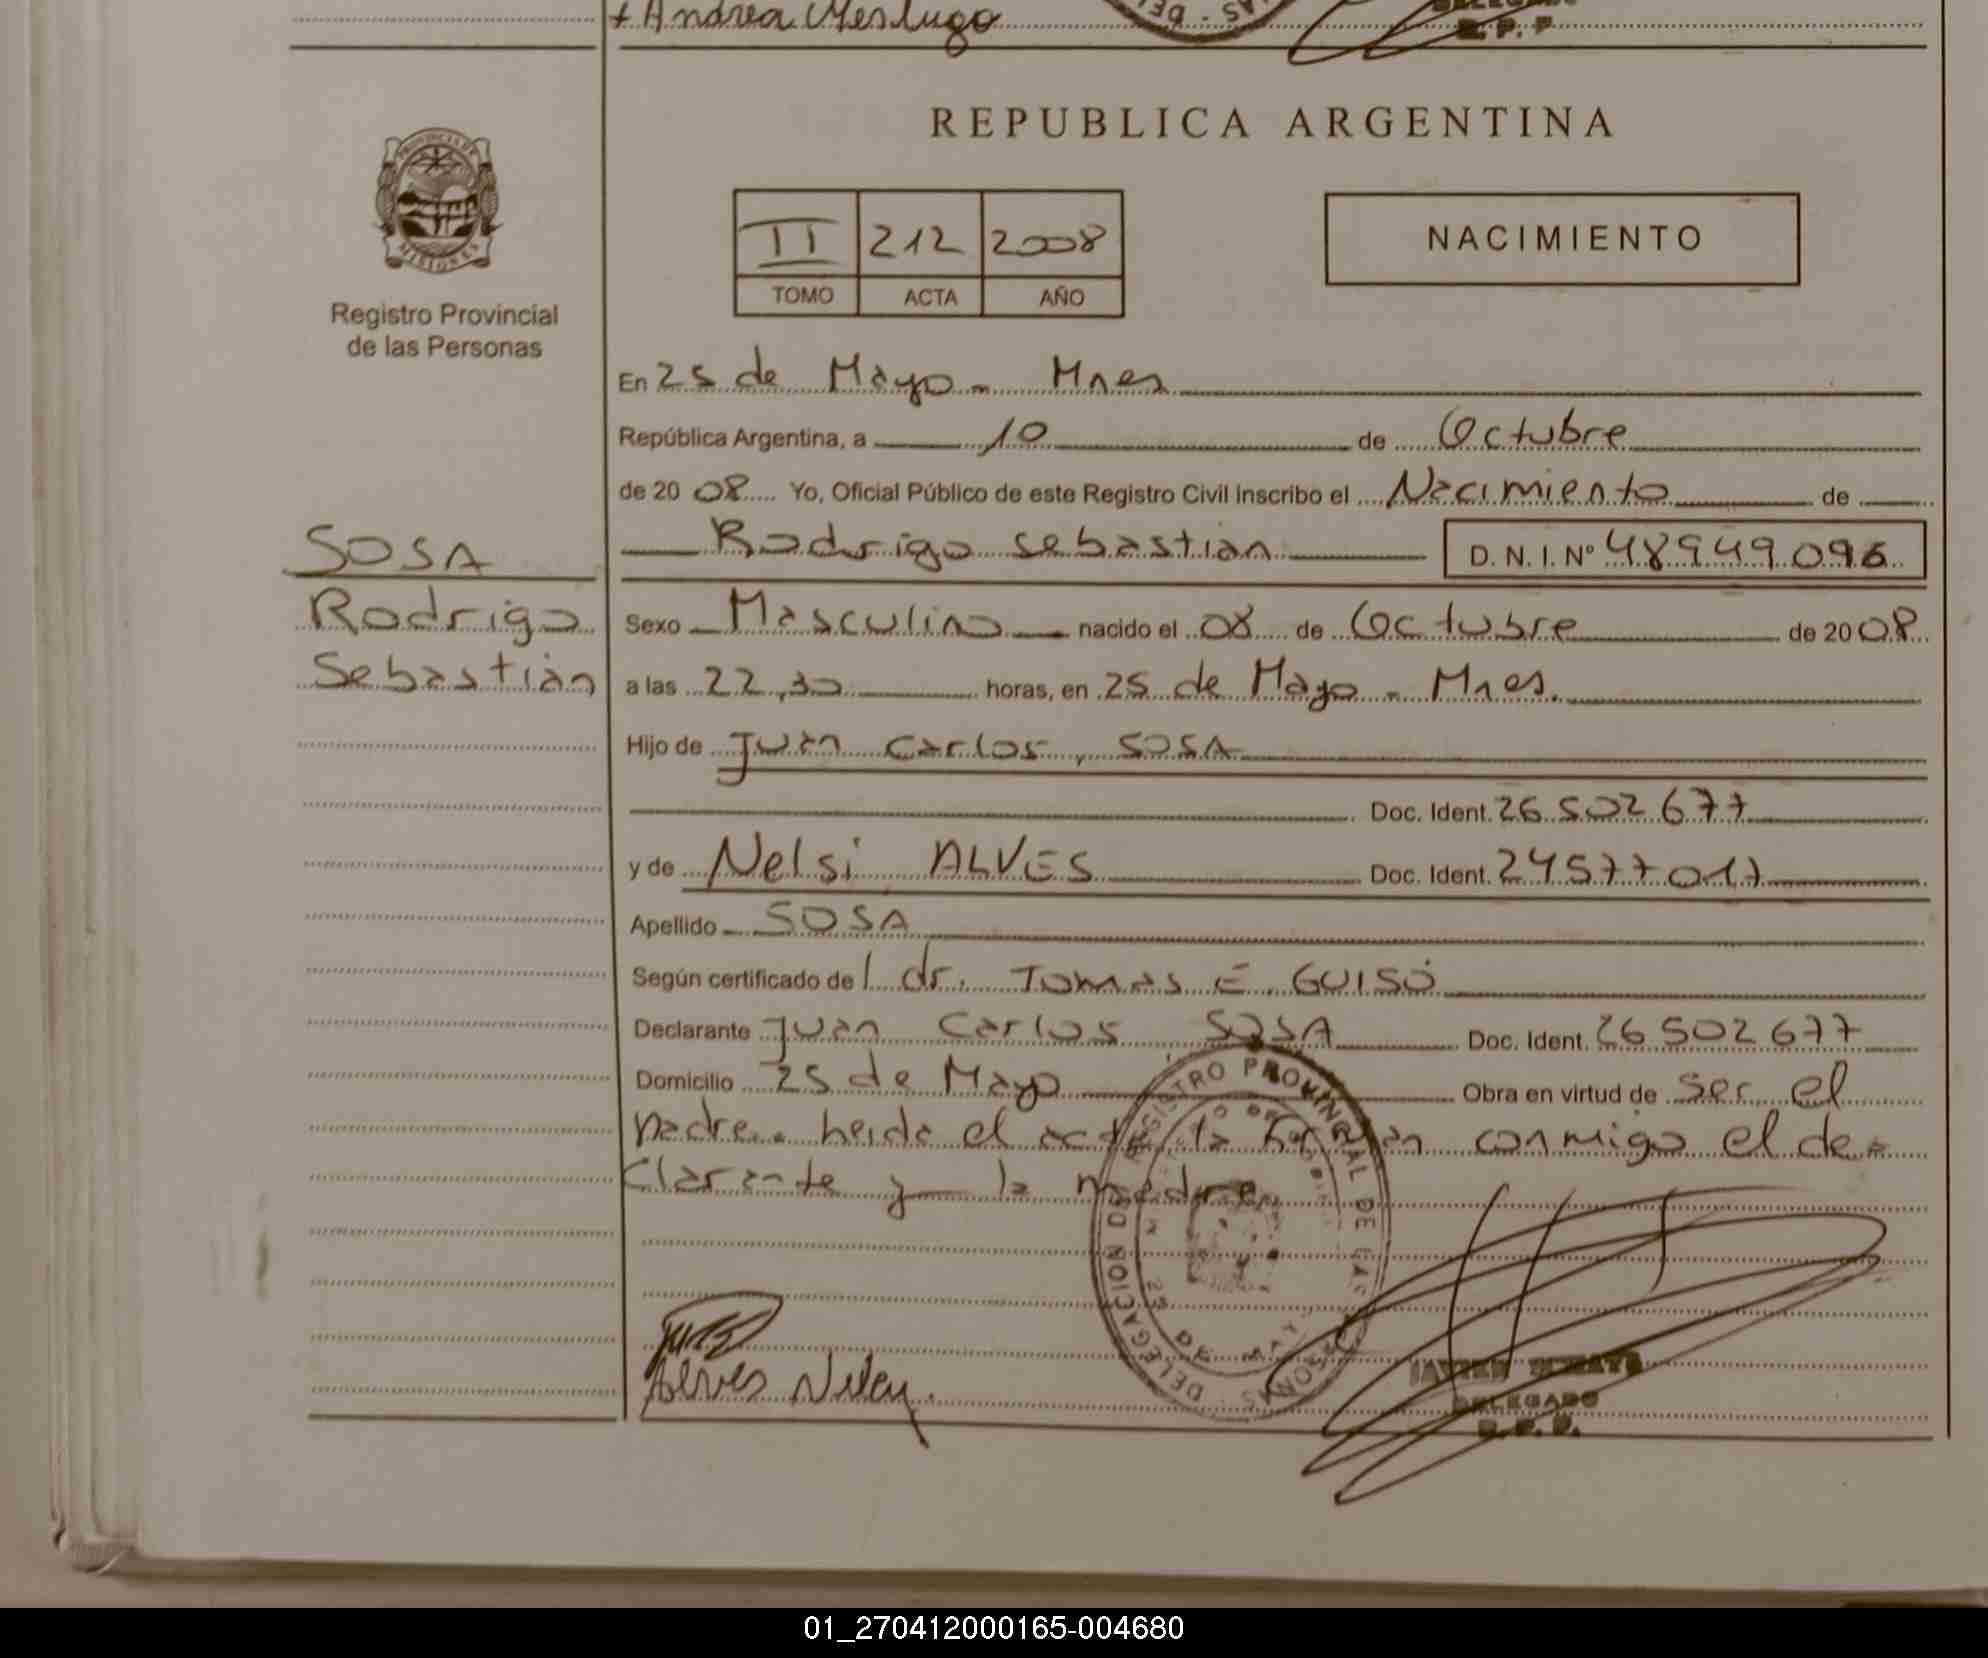 + Andrea Merlugo
R. P. P
REPUBLICA ARGENTINA
PROVINCIA DE
MISIONES
Registro Provincial
de las Personas
II 212 2008
TOMO ACTA AÑO
NACIMIENTO
En 25 de Mayo - Mnes
República Argentina, a 10 de Octubre
de 20 08 Yo, Oficial Público de este Registro Civil inscribo el Nacimiento de
SOSA
Rodrigo Sebastián
D. N. I. Nº 48949096
Rodrigo
Sexo Masculino nacido el 08 de Octubre de 20 08
Sebastián
a las 22,30 horas, en 25 de Mayo - Mnes.
Hijo de Juan Carlos, SOSA
Doc. Ident. 26502677
y de Nelsi ALVES Doc. Ident. 24577017
Apellido SOSA
Según certificado de l dr. Tomas E. GUISÓ
Declarante Juan Carlos SOSA Doc. Ident. 26502677
Domicilio 25 de Mayo Obra en virtud de ser el
padre. heida el acta, la firman conmigo el de-
clarante y la madre.
REGISTRO PROVINCIAL DE LAS PERSONAS - DELEGACION
25 DE MAYO
Alves
DELEGADO
R. P. P.
01_270412000165-004680